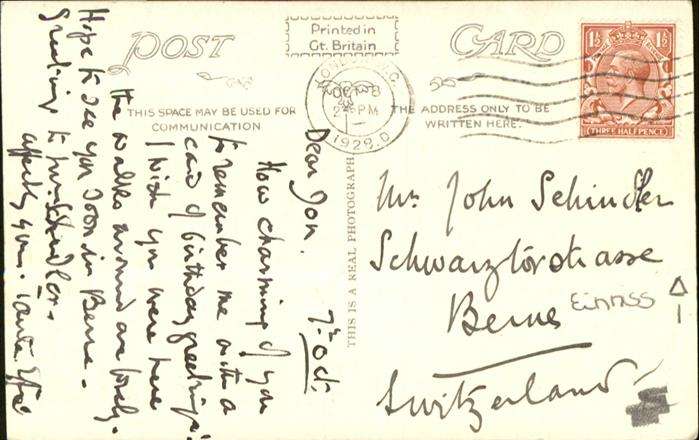 POST CARD
Printed in
Gt. Britain
THIS SPACE MAY BE USED FOR
COMMUNICATION
THE ADDRESS ONLY TO BE
WRITTEN HERE.
OCT 8
PM
1929
1½ 1½
THREE HALFPENCE
THIS IS A REAL PHOTOGRAPH.
7th Oct.
Dear Jon.
How charming of you
to remember me with a
card of birthday greetings!
I wish you were here
the walks around are lovely.
Hope to see you soon in Berne.
Greetings to Mr. Schindler.
affectly yours.
Mr. John Schindler
Schwarztorstrasse
Berne
Switzerland
Einriss
1.